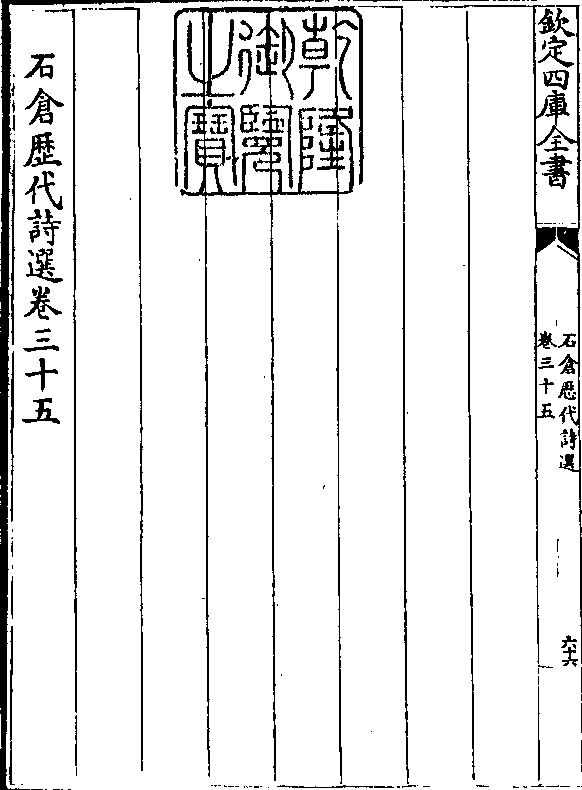 欽定四庫全書
石倉歴代詩選
卷三十五
六十六
乾隆
御覽
之寶
石倉歴代詩選卷三十五